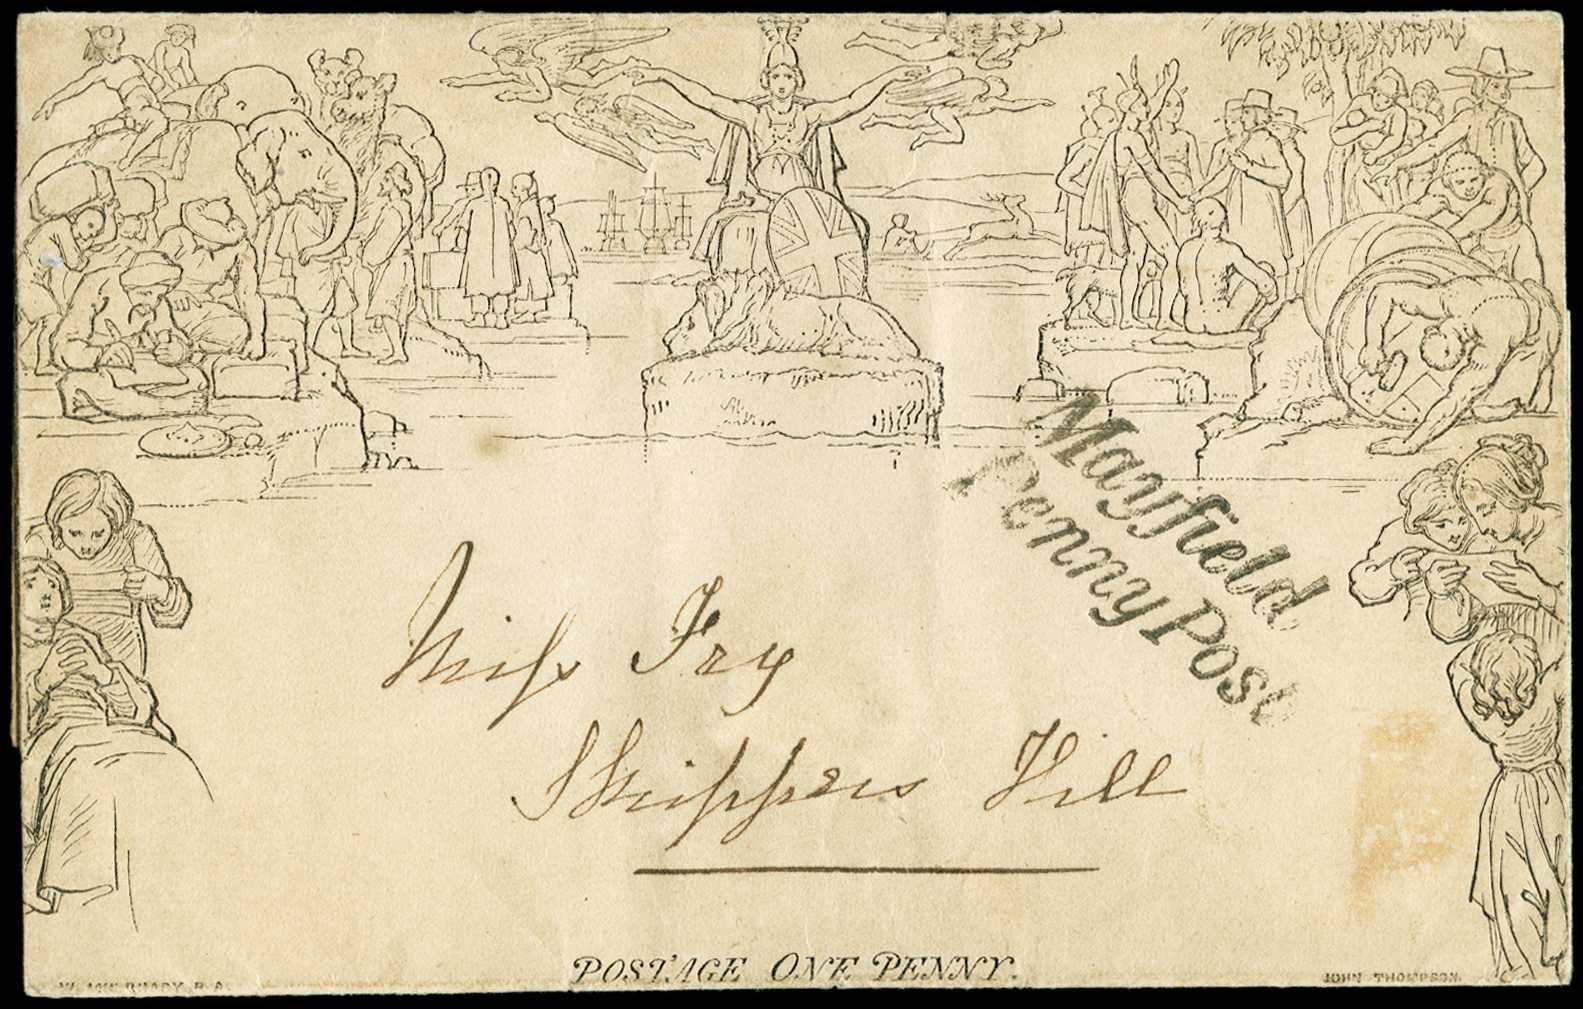 Mayfield
Penny Post
Miſs Fry
Skippers Hill
POSTAGE ONE PENNY.
W. MULREADY R.A.
JOHN THOMPSON.